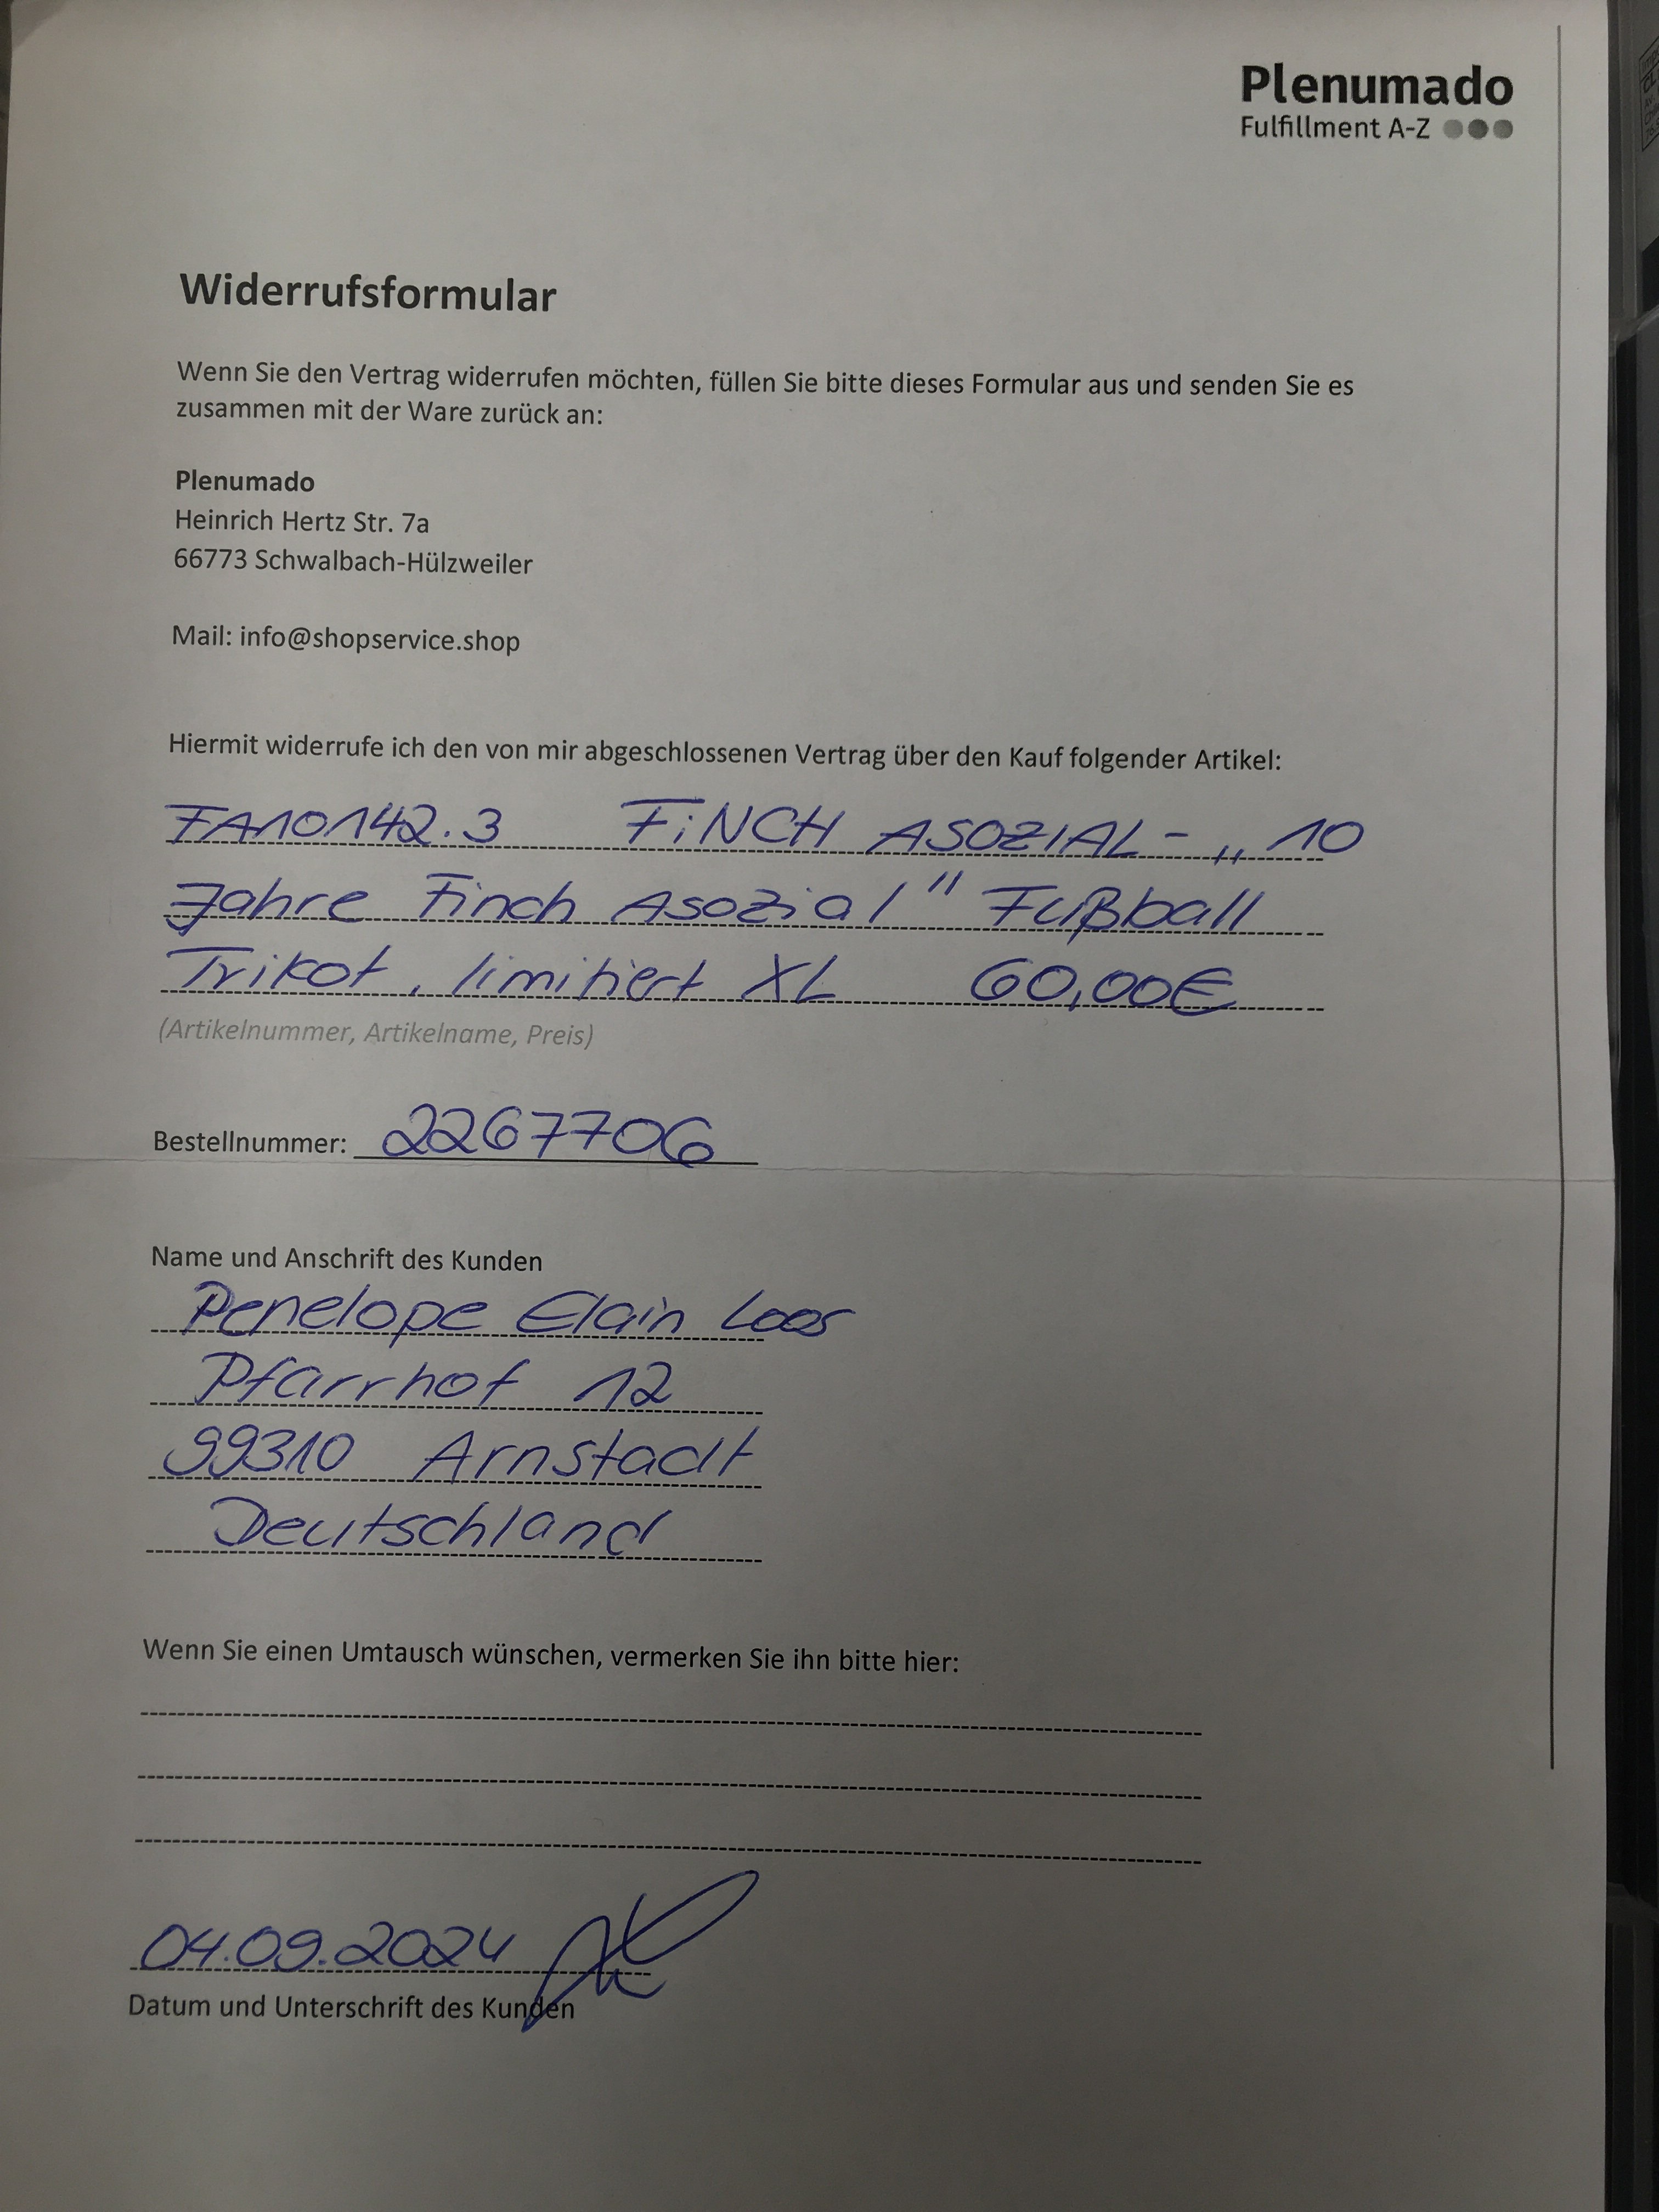 Plenumado
Fulfillment A-Z
Widerrufsformular
Wenn Sie den Vertrag widerrufen möchten, füllen Sie bitte dieses Formular aus und senden Sie es
zusammen mit der Ware zurück an:
Plenumado
Heinrich Hertz Str. 7a
66773 Schwalbach-Hülzweiler
Mail: info@shopservice.shop
Hiermit widerrufe ich den von mir abgeschlossenen Vertrag über den Kauf folgender Artikel:
FA10142.3 FiNCH ASOZIAL - „10
Jahre Finch Asozial" Fußball
Trikot, limitiert XL 60,00€
(Artikelnummer, Artikelname, Preis)
Bestellnummer: 2267706
Name und Anschrift des Kunden
Penelope Elain Loos
Pfarrhof 12
99310 Arnstadt
Deutschland
Wenn Sie einen Umtausch wünschen, vermerken Sie ihn bitte hier:
04.09.2024
Datum und Unterschrift des Kunden